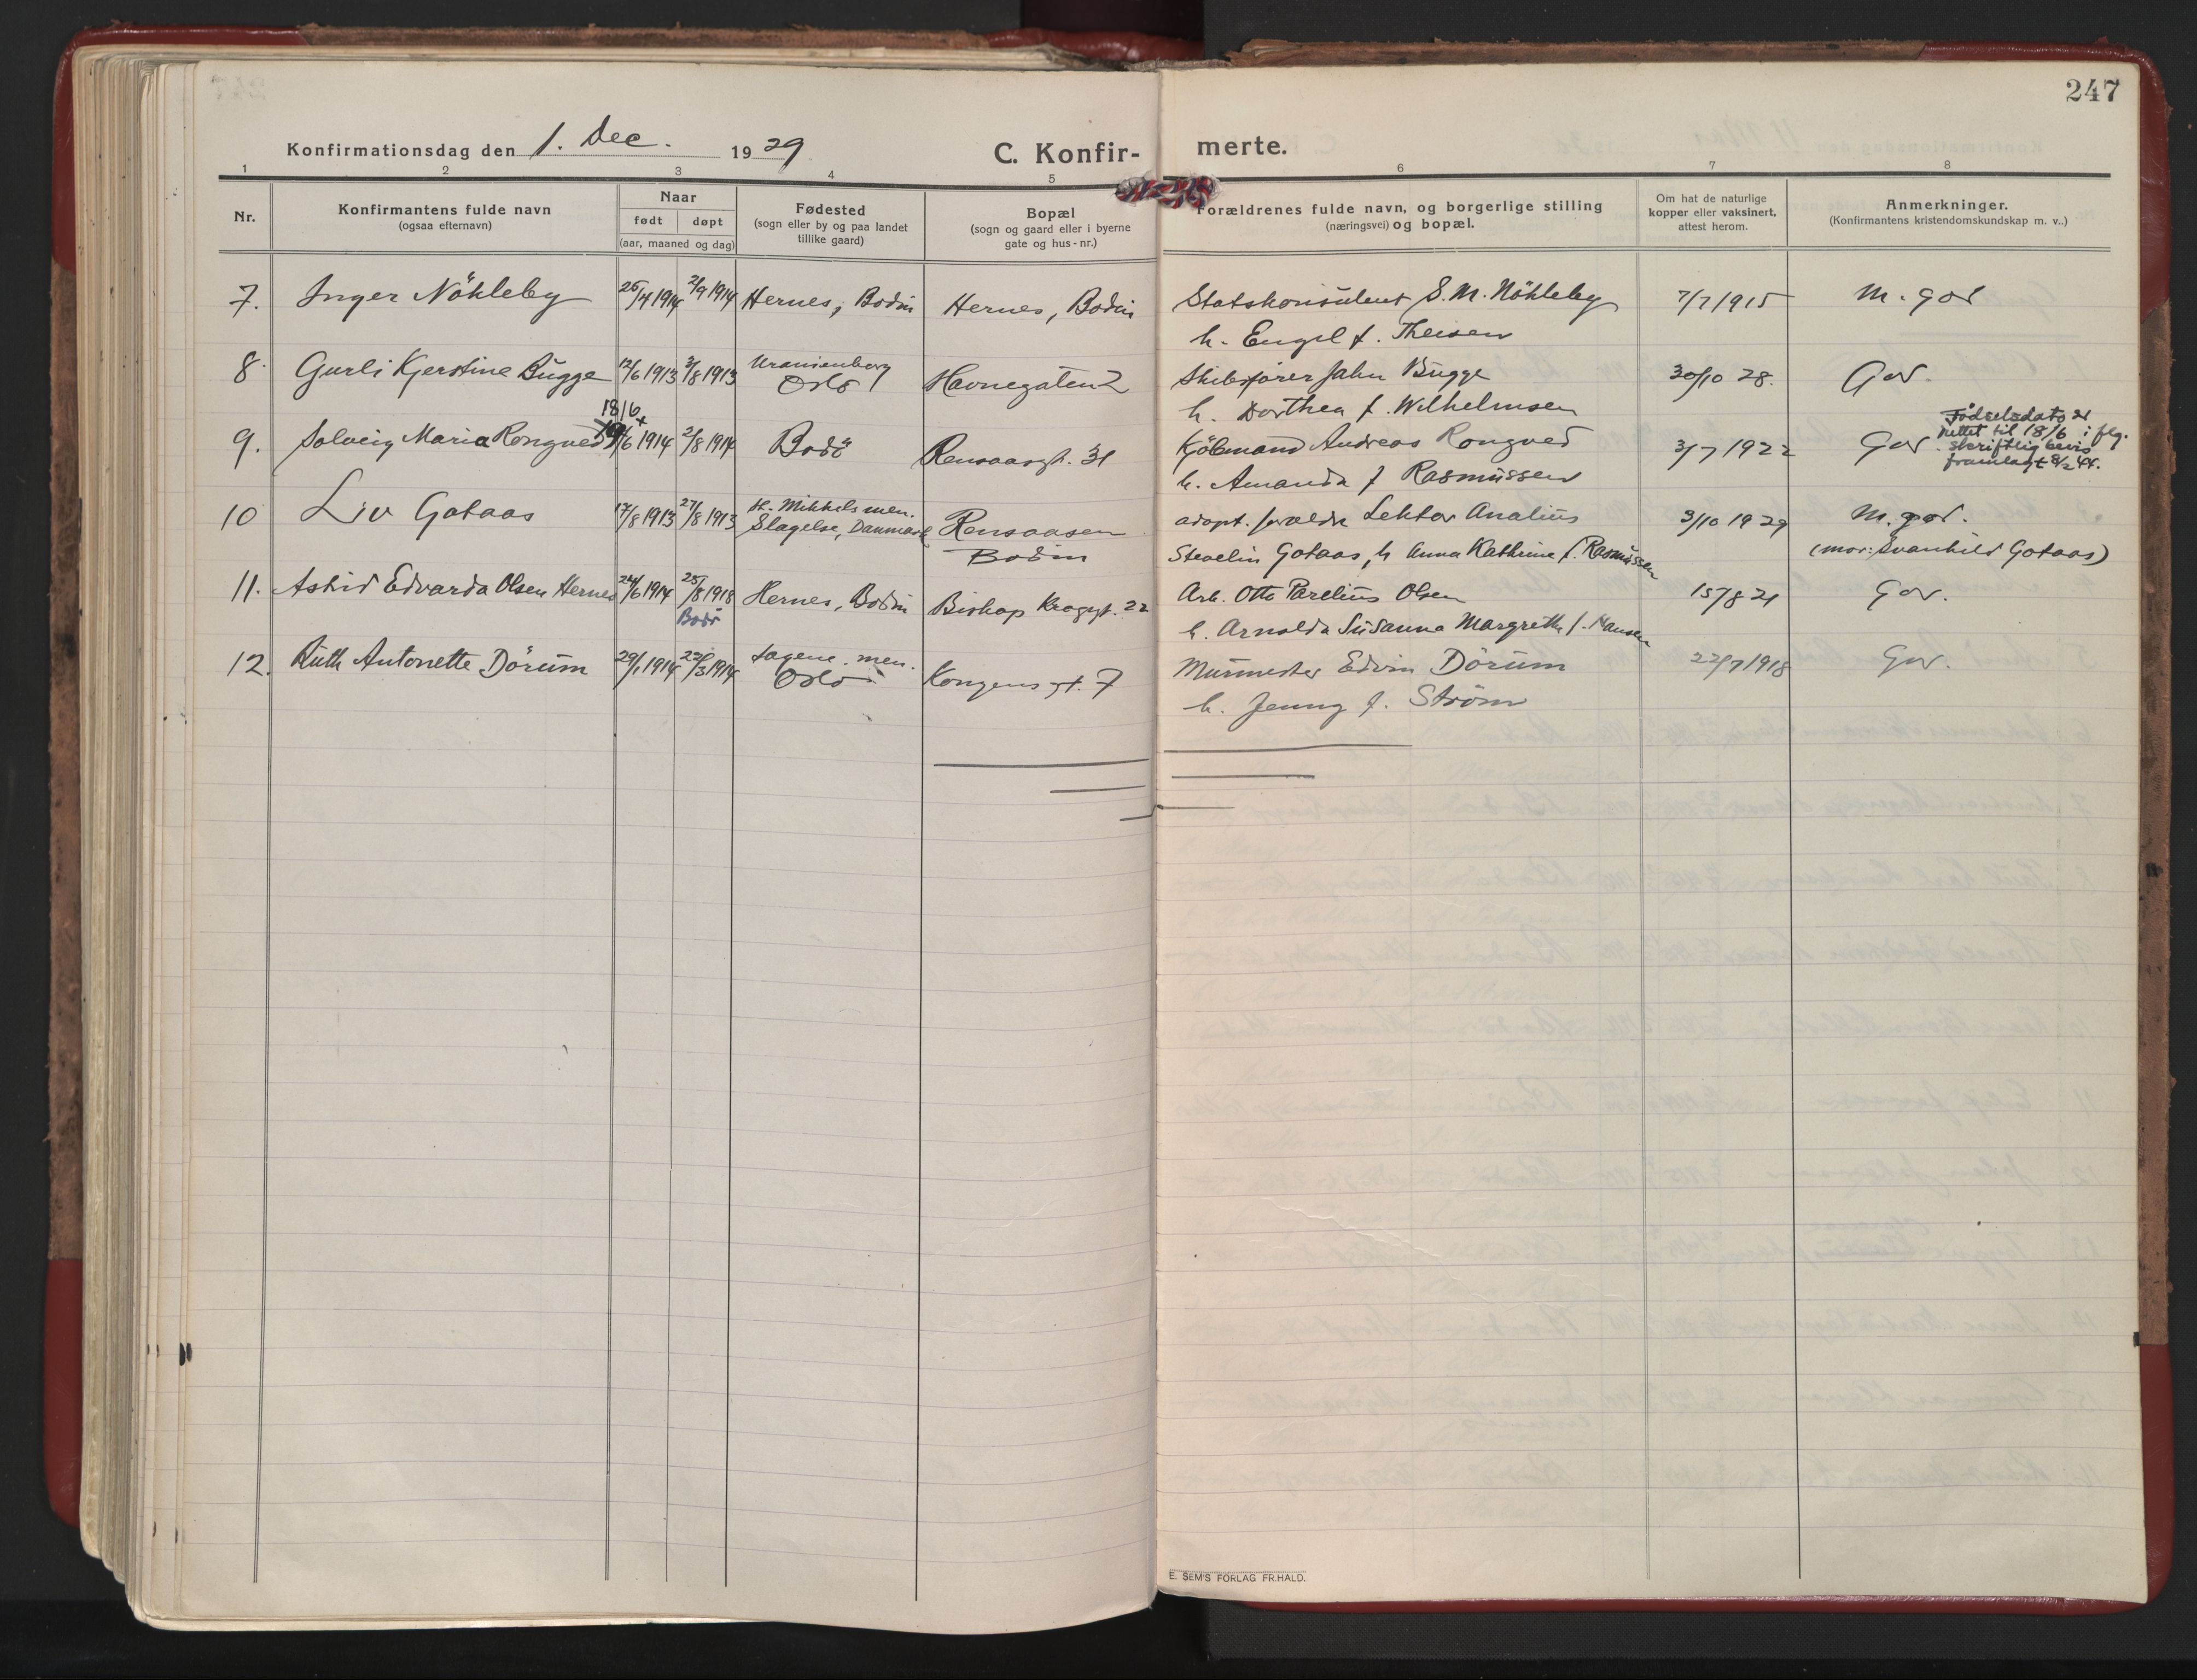 247
Konfirmationsdag den 1. Dec. 1929 C. Konfir- merte.
1 2 3 4 5 6 7 8
Nr. Konfirmantens fulde navn (ogsaa efternavn) Naar født døpt (aar, maaned og dag) Fødested (sogn eller by og paa landet tillike gaard) Bopæl (sogn og gaard eller i byerne gate og hus-nr.) Forældrenes fulde navn, og borgerlige stilling (næringsvei) og bopæl. Om hat de naturlige kopper eller vaksinert, attest herom. Anmerkninger. (Konfirmantens kristendomskundskap m. v.)
7. Inger Nökleby 25/4 1914 2/9 1914 Hernes, Bodin Hernes, Bodin Statskonsulent S. M. Nökleby 7/7 1915 M. god
h. Engel f. Theisen
8. Gurli Kjerstine Bugge 12/6 1913 3/8 1913 Uranienborg Oslo Havnegaten 2 Skibsfører John Bugge 30/10 28. God.
h. Dorthea f. Wilhelmsen
18/6
9. Solveig Maria Rongved 19/6 1914 2/8 1914 Bodö Rensaasgt. 31 Kjöbmand Andreas Rongved 3/7 1922 God. Fødselsdato er rettet til 18/6 i flg. skriftlig bevis framlagt 8/2 44.
h. Amanda f Rasmussen
10 Liv Gotaas 17/8 1913 27/8 1913 St. Mikkels men. Slagelse, Danmark Rensaasen Bodin adopt. forældre Lektor Analius 3/10 1929 M. god.
Stevelin Gotaas, h Anna Kathrine f. Rasmussen (mor: Svanhild Gotaas)
11. Astrid Edvarda Olsen Hernes 24/6 1914 25/8 1918 Bodö Hernes, Bodin Biskop Krogsgt. 22 Arb. Otto Parelius Olsen 15/8 21 God.
h. Arnolda Susanna Margrethe f. Hansen
12. Ruth Antonette Dörum 29/1 1914 22/3 1914 Sagene men. Oslo Kongens gt. 7 Murmester Edvin Dörum 22/7 1918 God.
h. Jenny f. Ström
E. SEM'S FORLAG FR.HALD.